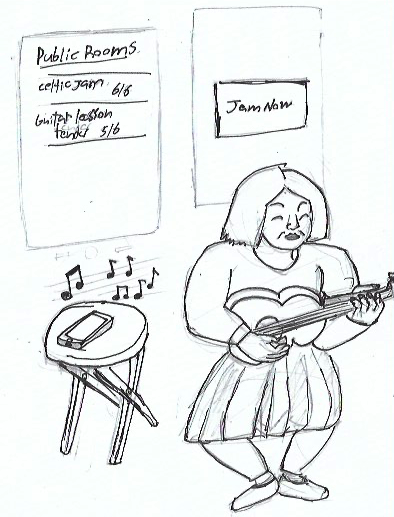 Public Rooms
celtic jam 6/6
Guitar lesson
5/6
Jam Now